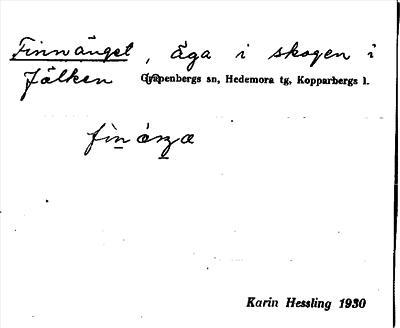 Finnänget, äga i skogen i
Jälken Gyllenbergs sn, Hedemora tg, Kopparbergs l.
Karin Hessling 1930